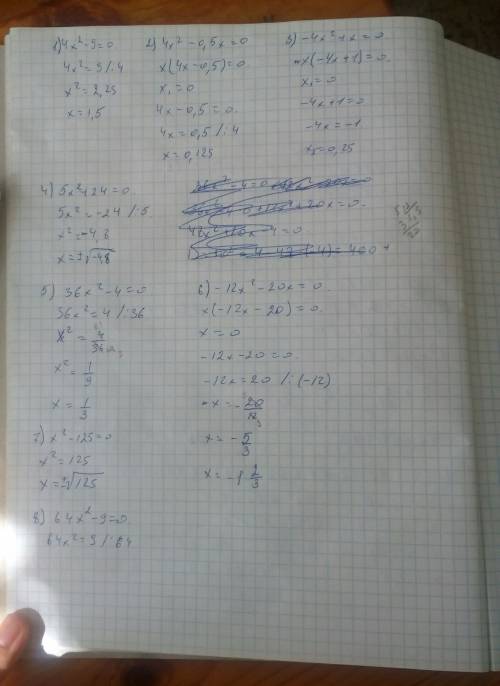 1) 4x²-9=0
4x²=9 /:4
x²=2,25
x=1,5
2) 4x²-0,5x=0
x(4x-0,5)=0
x₁=0
4x-0,5=0
4x=0,5 /:4
x=0,125
3) -4x²+x=0
x(-4x+1)=0
x₁=0
-4x+1=0
-4x=-1
x₂=0,25
4) 5x²+24=0
5x²=-24 /:5
x²=-4,8
x=±√-4,8
5) 36x²-4=0
36x²=4 /:36
x²=4/36
x²=1/9
x=1/3
6) -12x²-20x=0
x(-12x-20)=0
x=0
-12x-20=0
-12x=20 /:(-12)
x=-20/12
x=-5/3
x=-1 2/3
7) x²-125=0
x²=125
x=±√125
8) 64x²-9=0
64x²=9 /:64